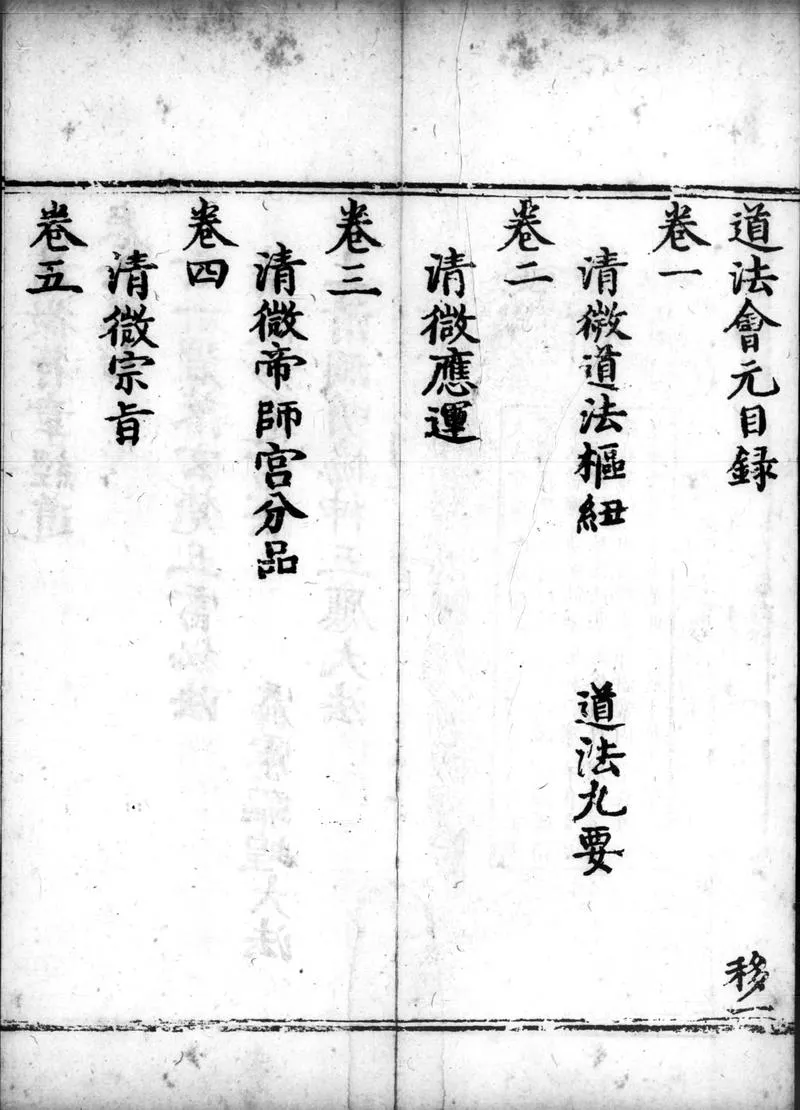 道法會元目録
移一
卷一
清微道法樞紐 道法九要
卷二
清微應運
卷三
清微帝師宮分品
卷四
清微宗旨
卷五